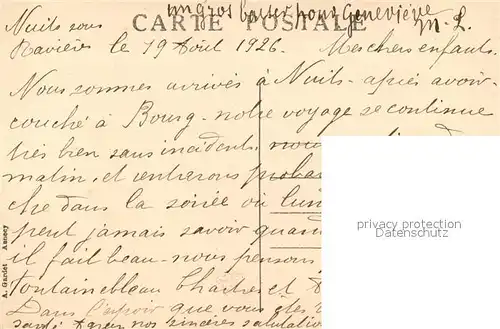 un gros baiser pour Geneviève
M. L.
CARTE POSTALE
Nuits sous
Ravières le 19 Août 1926. Mes chers enfants.
Nous sommes arrivés à Nuits - après avoir
couché à Bourg - notre voyage se continue
très bien sans incidents.
matin, et entrerons
che dans la soirée ou lun
peut jamais savoir quan
il fait beau - nous pensons
Fontainebleau Chartres et
Dans l'espoir que vous
nos sincères salutatio
A. Gardet Annecy
privacy protection
Datenschutz